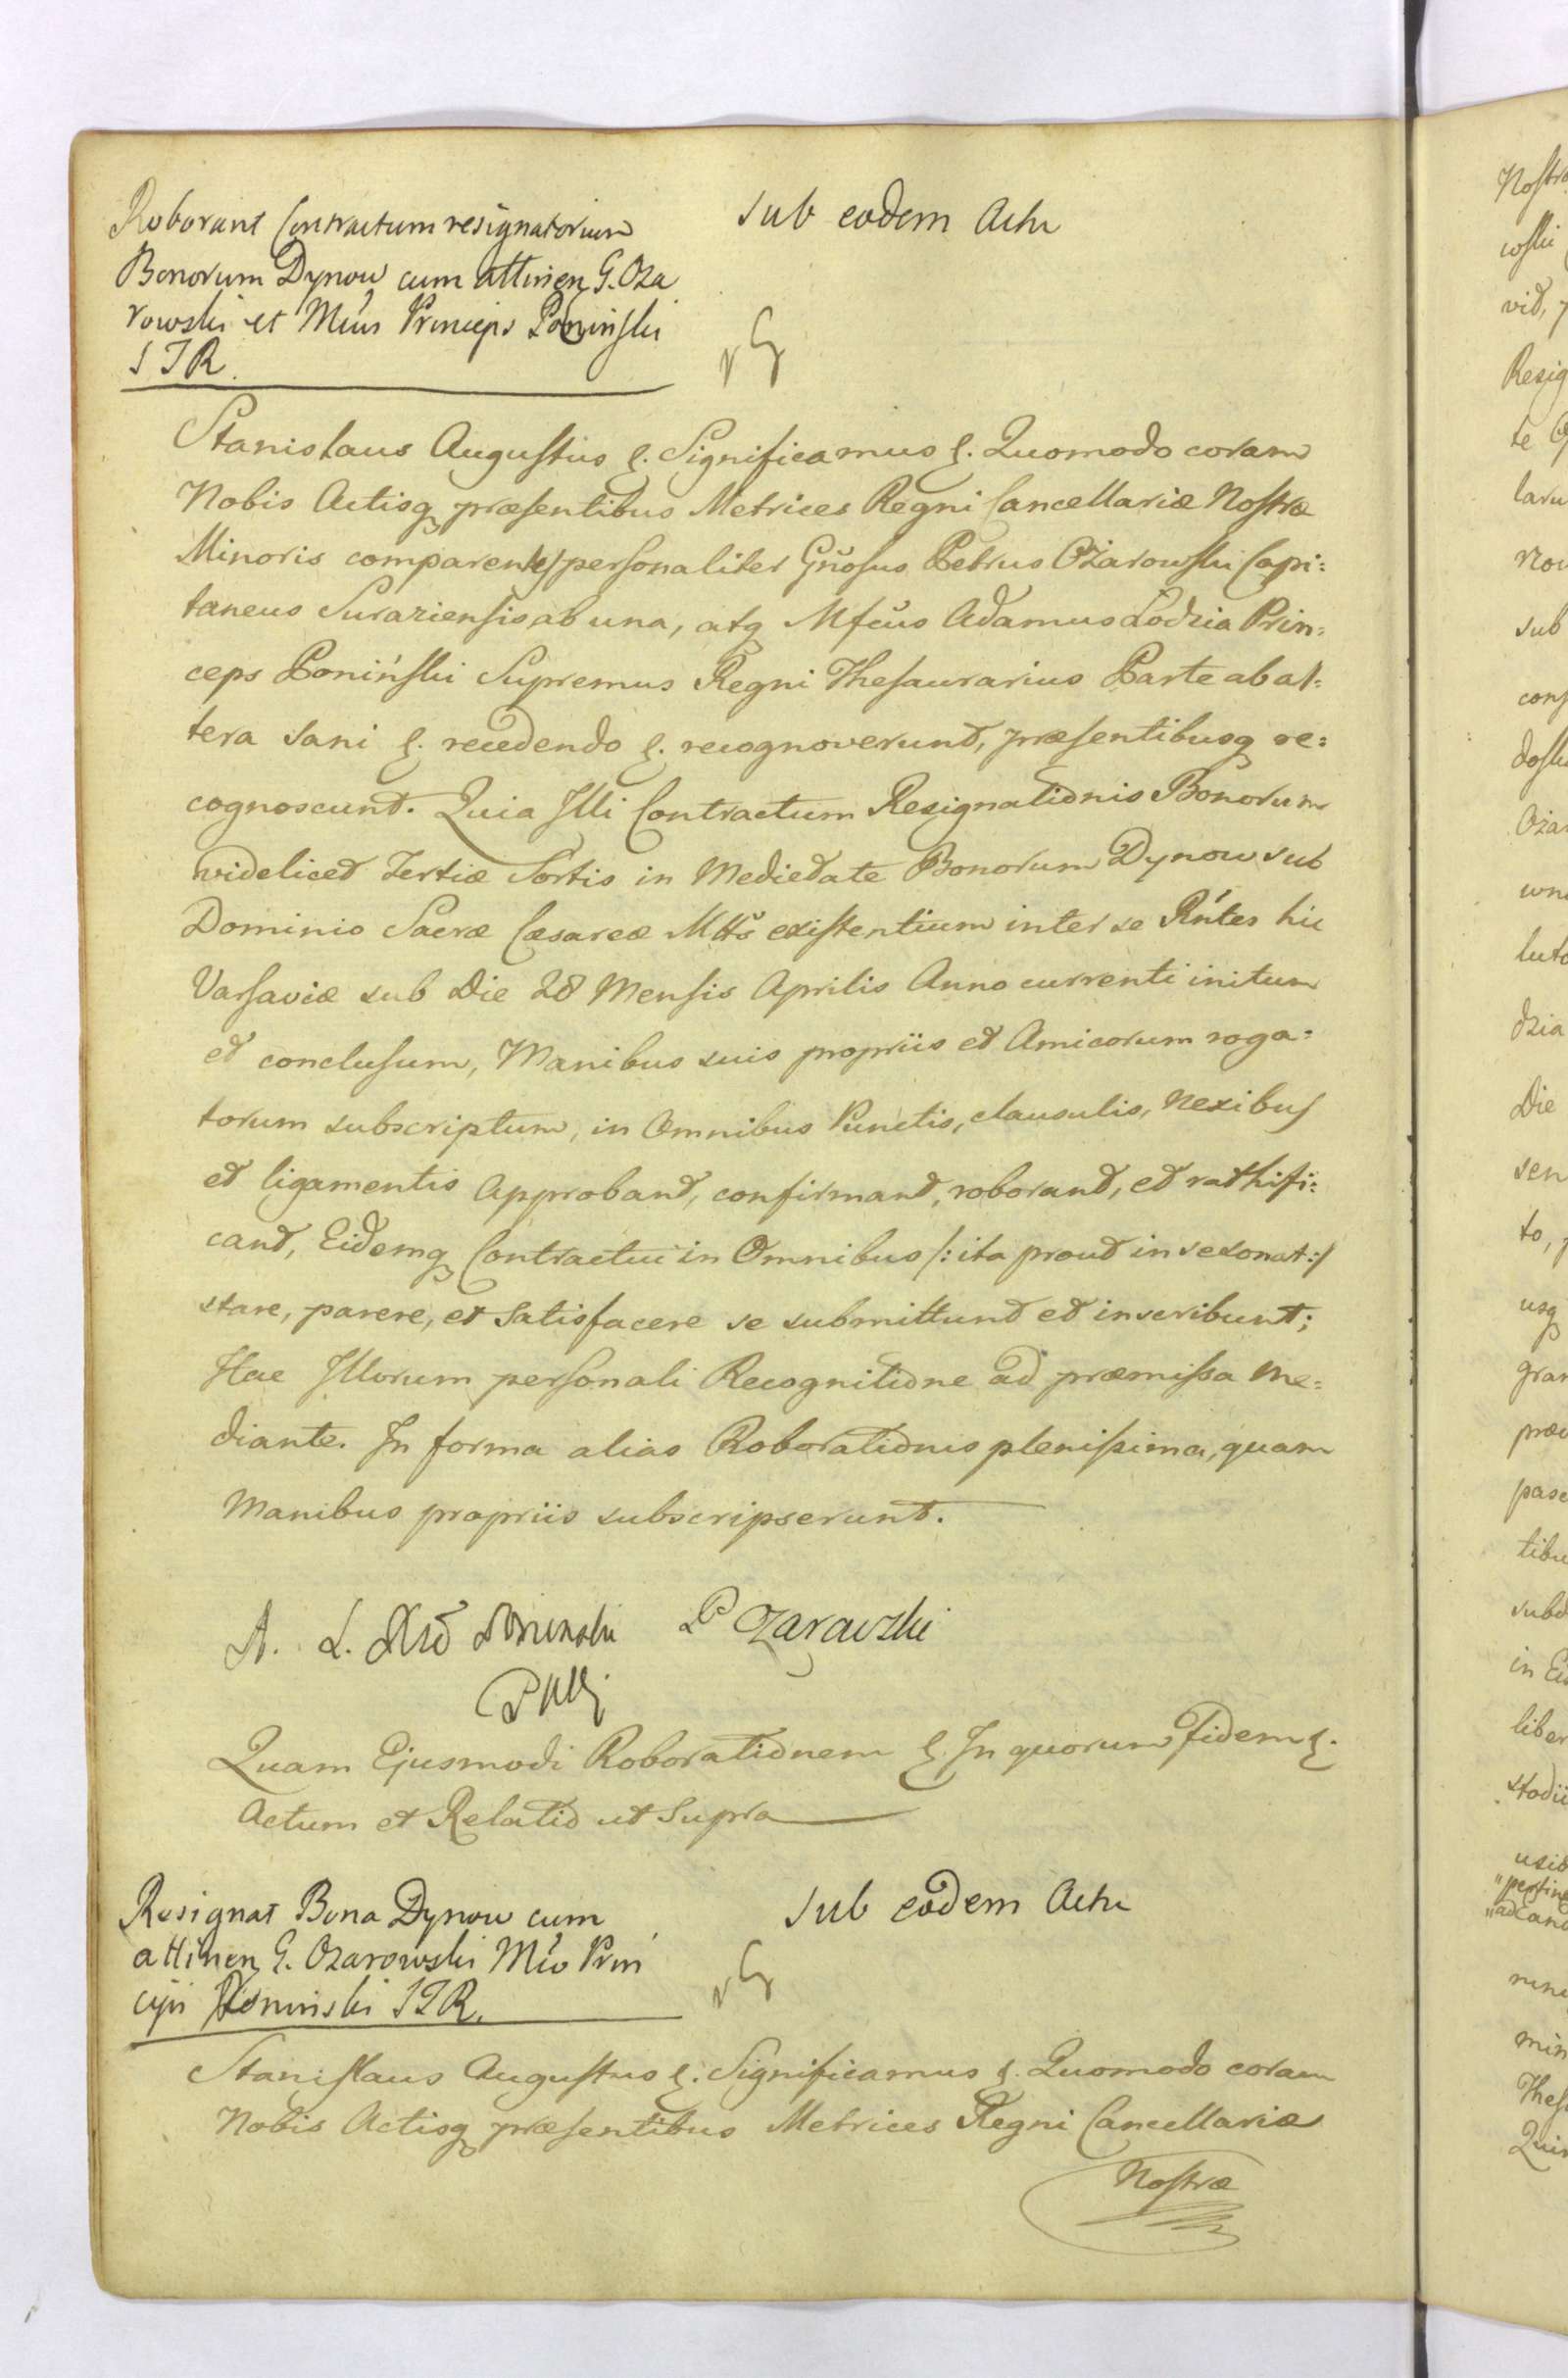 Roborant Contractum resignatorium
Bonorum Dynow cum attinen G. Oża
rowski et Mcus Princeps Poninski
S T R.
sub eodem Actu
Stanislaus Augustus &. Significamus &. Quomodo coram
Nobis Actisq præsentibus Metrices Regni Cancellariæ Nostræ
Minoris comparentes personaliter Gñosus Petrus Ożarowski Capi:
taneus Suraziensis ab una, atq Mfcus Adamus Lodzia Prin:
ceps Poniński Supremus Regni Thesaurarius Parte ab al:
tera sani &. recedendo &. recognoverunt, præsentibusq re:
cognoscunt. Quia Illi Contractum Resignationis Bonorum
videlicet Tertiæ Sortis in Medietate Bonorum Dynow sub
Dominio Sacræ Cæsareæ Mttis existentium inter se Rñtes hic
Varsaviæ sub Die 28 Mensis Aprilis Anno currenti initum
et conclusum, Manibus suis propriis et Amicorum roga:
torum subscriptum, in Omnibus Punctis, clausulis, Nexibus
et ligamentis Approbant, confirmant, roborant, et rathifi:
cant, Eidemq Contractui in Omnibus /: ita prout in se sonat :/
stare, parere, et Satisfacere se submittunt et inscribunt;
Hac Illorum personali Recognitione ad præmissa me:
diante. In forma alias Roborationis plenissima, quam
Manibus propriis subscripserunt.
A. L. Poninski P Ozarowski
Quam Ejusmodi Roborationem &. In quorum Fidem &.
Actum et Relatio ut Supra
Resignat Bona Dynow cum
attinen G. Ozarowski Mco Prin
cipi Poninski S T R.
sub eodem Actu
Stanislaus Augustus &. Significamus &. Quomodo coram
Nobis Actisq præsentibus Metrices Regni Cancellariæ
Nostræ